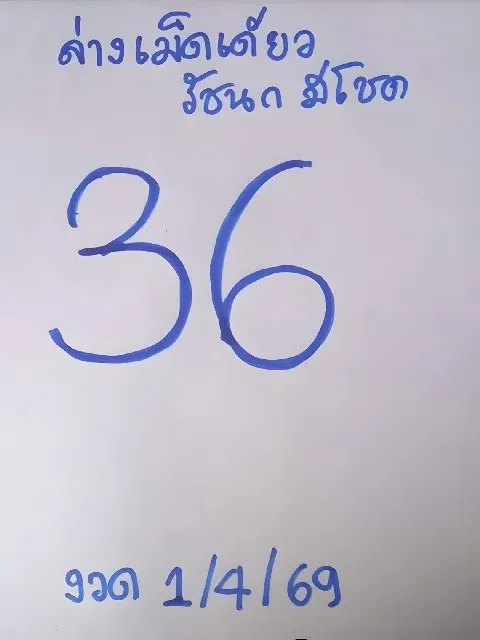 ล่างเม็ดเดียว
รัชนก มีโชค
36
งวด 1/4/69